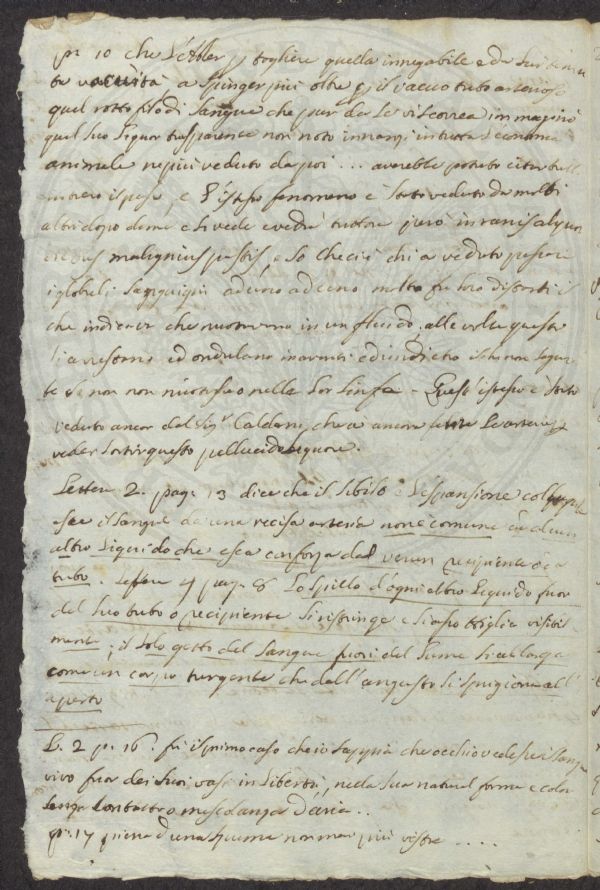 p. 10 che l'Haller p togliere quella innegabile e da lui
vacuita a spinger piu oltre p il vacuo tubo arterioso
quel rotto filo di sangue che pur da se vi scorrea immaginò
quel suo liquor trasparente non noto innanzi in tutta l'economia
animale ne piu veduto da poi ... averebbe potuto citar
il passo, e l'istesso fenomeno è stato veduto da molti
altri dopo deme e si vede e vedrà tuttora però in ranis
malignius pastis, e so che ciò chi a veduto passare
i globuli sanguigni ad uno ad uno molto fra loro distanti il
che indicava che nuotavano in un fluido alle volte questi
si arrestano ed ondulano inavanti ed indietro il che non
se non non nuotasse o nella lor linfa - Quest'istesso è stato
veduto ancor dal Sigr Caldani, che a ancora
veder sortir questo pellucido liquore.
Lettera 2. pag. 13 dice che il sibilo e l'espansione col
esce il sangue da una recisa arteria non è comune ad alcun
altro liquido che esca con forza dal recipiente o
tubo. Lettera 4 pag. 8 Lo spillo d'ogni altro liquido fuor
del suo tubo o recipiente si ristringe e si assottiglia visibil
mente, il solo getto del sangue fuori del lume si allarga
come un corpo turgente che dall'angusto si sprigiona all'
aperto
L. 2 p. 16. fu il primo caso che io sappia che occhio vedesse il sangue
vivo fuor dei suoi vasi in libertà, nella sua natural forma e color
senza contatto o mescolanza d'aria..
p. 17 piena d'una spuma non mai piu vista ....